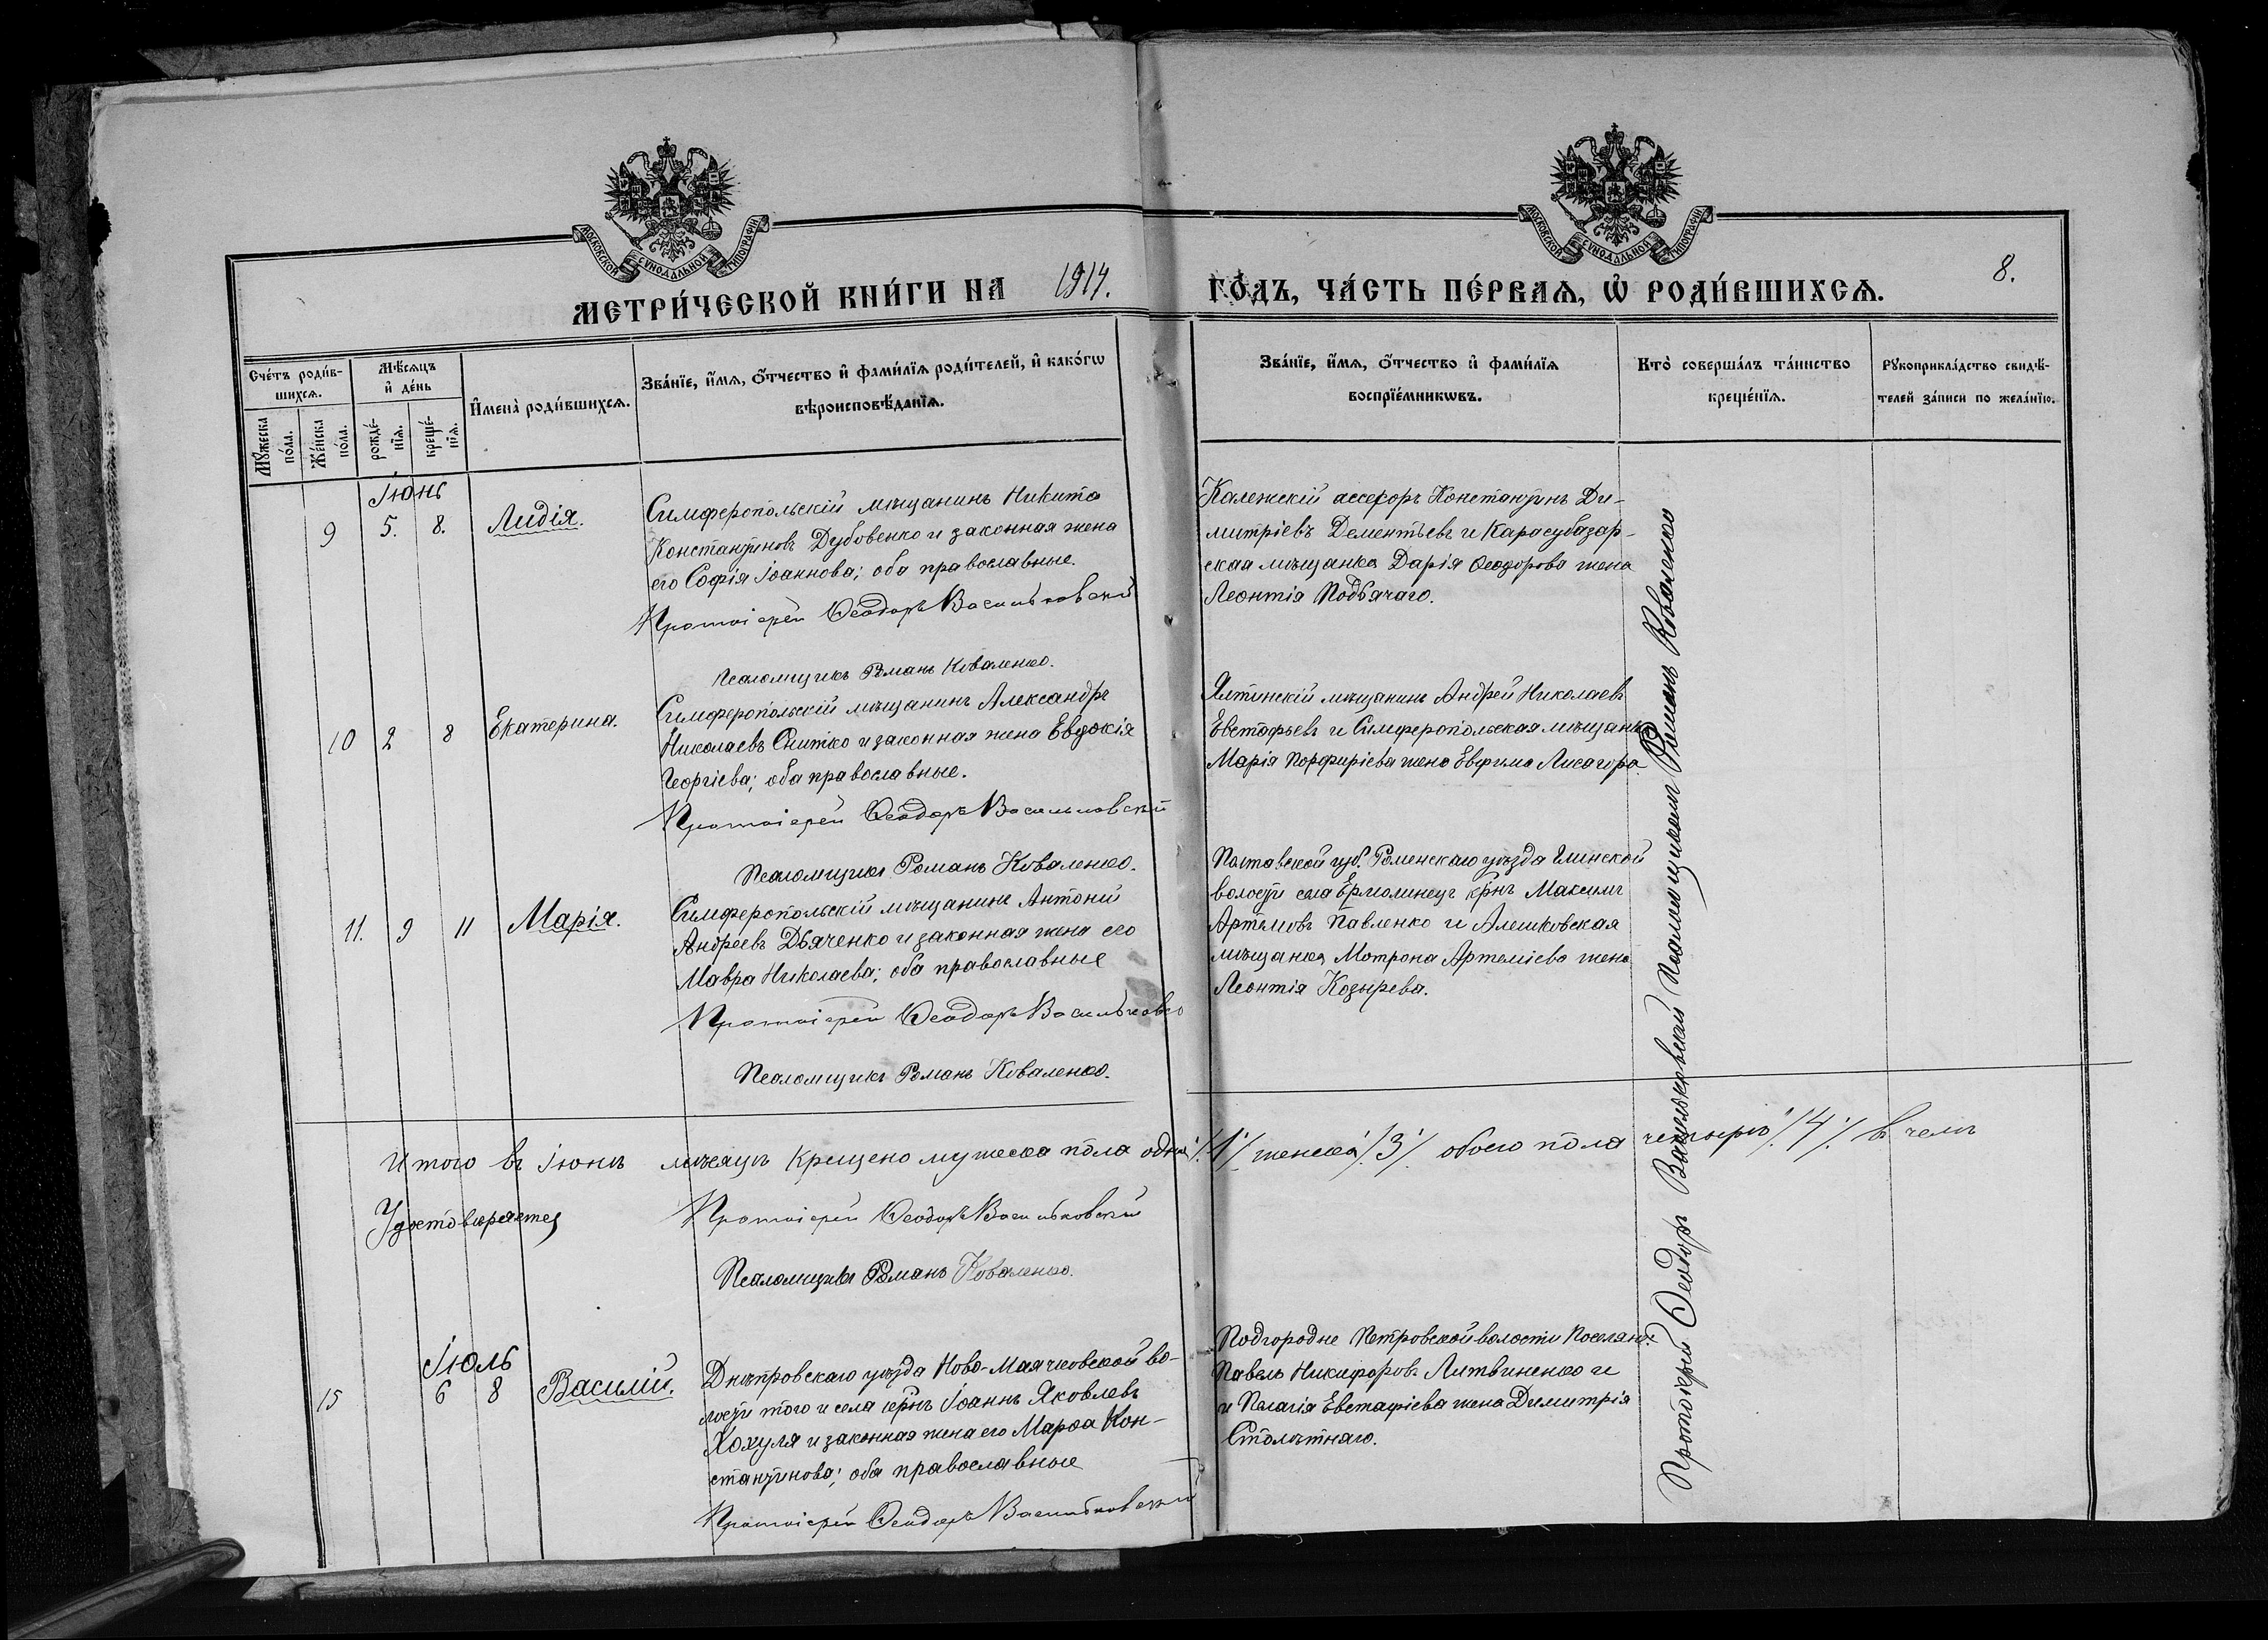 МОСКОВСКОЙ СУНОДАЛЬНОЙ ТИПОГРАФІИ
МОСКОВСКОЙ СУНОДАЛЬНОЙ ТИПОГРАФІИ
8.
МЕТРИ́ЧЕСКОЙ КНИ́ГИ НА 1914. ГО́ДЪ, ЧА́СТЬ ПЕ́РВАѦ, Ѡ҆ РОДИ́ВШИХСѦ.
Сче́тъ роди́в-
шихсѧ.
Мѣ́сѧцъ
и҆ де́нь
Мꙋ́жеска
по́ла.
Же́нска
по́ла.
рожде́-
нїѧ.
креще́-
нїѧ.
И҆мена̀ роди́вшихсѧ.
Зва́нїе, и҆́мѧ, ѻ҆́тчество и҆ фами́лїѧ роди́телей, и҆ како́гѡ
вѣроисповѣ́данїѧ.
Зва́нїе, и҆́мѧ, ѻ҆́тчество и҆ фами́лїѧ
воспрїе́мникѡвъ.
Кто̀ соверша́лъ та́инство
креще́нїѧ.
Рꙋкоприкла́дство свидѣ́-
телей за́писи по жела́нїю.
Іюнь
9 5. 8. Лидія.
Симферопольскій мѣщанинъ Никита
Константиновъ Дубовенко и законная жена
его Софія Іоаннова; оба православные.
Протоіерей Ѳеодоръ Васильковскій
Псаломщикъ Романъ Коваленко.
Колежскій ассесоръ Константинъ Ди-
митріевъ Дементьевъ и Карасубазар-
ская мѣщанка Дарія Ѳеодорова жена
Леонтія Подьячаго.
10 2 8 Екатерина.
Симферопольскій мѣщанинъ Александръ
Николаевъ Снитко и законная жена Евдокія
Георгіева; оба православные.
Протоіерей Ѳеодоръ Васильковскій
Псаломщикъ Романъ Коваленко.
Ялтинскій мѣщанинъ Андрей Николаевъ
Евстафьевъ и Симферопольская мѣщанка
Марія Порфиріева жена Евфима Лисагора.
11. 9 11 Марія.
Симферопольскій мѣщанинъ Антоній
Андреевъ Дьяченко и законная жена его
Мавра Николаева; оба православные
Протоіерей Ѳеодоръ Васильковс
Псаломщикъ Романъ Коваленко.
Полтавской губ. Роменскаго уѣзда Глинской
волости села Ермолинецъ крнъ Максимъ
Артемовъ Павленко и Алешковская
мѣщанка Мотрона Артеміева жена
Леонтія Козырева.
Итого въ Іюнѣ мѣсяцѣ крещено мужеска пола одинъ /1/ женска /3/ обоего пола четыре /4/ въ чемъ
Удостовѣряемъ
Протоіерей Ѳеодоръ Васильковскій
Псаломщикъ Романъ Коваленко.
Іюль
15 6 8 Василій.
Днѣпровскаго уѣзда Ново-Маячковской во-
лости того и села крнъ Іоаннъ Яковлевъ
Кохуля и законная жена его Марѳа Кон-
стантинова; оба православные
Протоіерей Ѳеодоръ Васильковскій
Подгородне Петровской волости поселянинъ
Павелъ Никифоровъ Литвиненко и
и Пелагія Евстафіева жена Димитрія
Столѣтняго.
Протоіерей Ѳеодоръ Васильковскій Псаломщикъ Романъ Коваленко